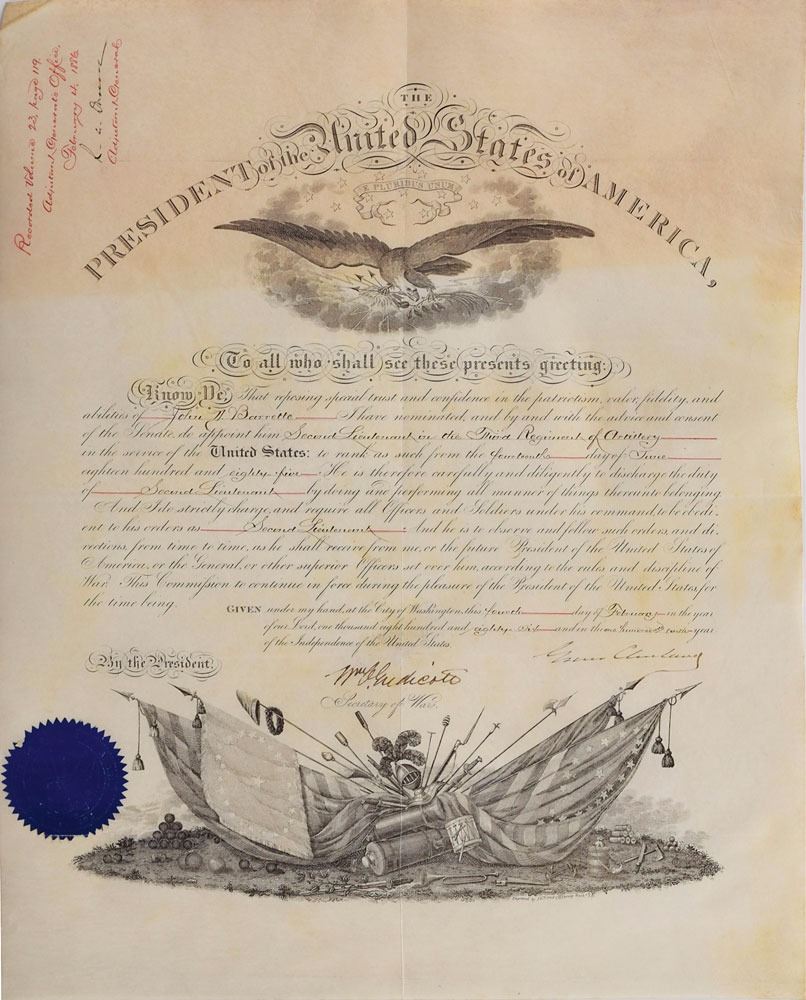 Recorded Volume 23, Page 119,
Adjutant General's Office,
February 4. 1886
Adjutant General
THE
PRESIDENT of the United States of AMERICA,
E PLURIBUS UNUM
To all who shall see these presents greeting:
Know Ye, That reposing special trust and confidence in the patriotism, valor, fidelity, and
abilities of John D. Barrette I have nominated, and by and with the advice and consent
of the Senate, do appoint him Second Lieutenant in the Third Regiment of Artillery
in the service of the United States: to rank as such from the fourteenth day of June
eighteen hundred and eighty-five. He is therefore carefully and diligently to discharge the duty
of Second Lieutenant by doing and performing all manner of things thereunto belonging.
And I do strictly charge, and require all Officers and Soldiers under his command, to be obedi-
ent to his orders as Second Lieutenant. And he is to observe and follow such orders, and di-
rections, from time to time, as he shall receive from me, or the future President of the United States of
America, or the General, or other superior Officers set over him, according to the rules and discipline of
War. This Commission to continue in force during the pleasure of the President of the United States, for
the time being.
GIVEN under my hand, at the City of Washington, this fourth day of February in the year
of our Lord, one thousand eight hundred and eighty-six and in the one hundred and tenth year
of the Independence of the United States.
Grover Cleveland
By the President,
Wm C. Endicott
Secretary of War.